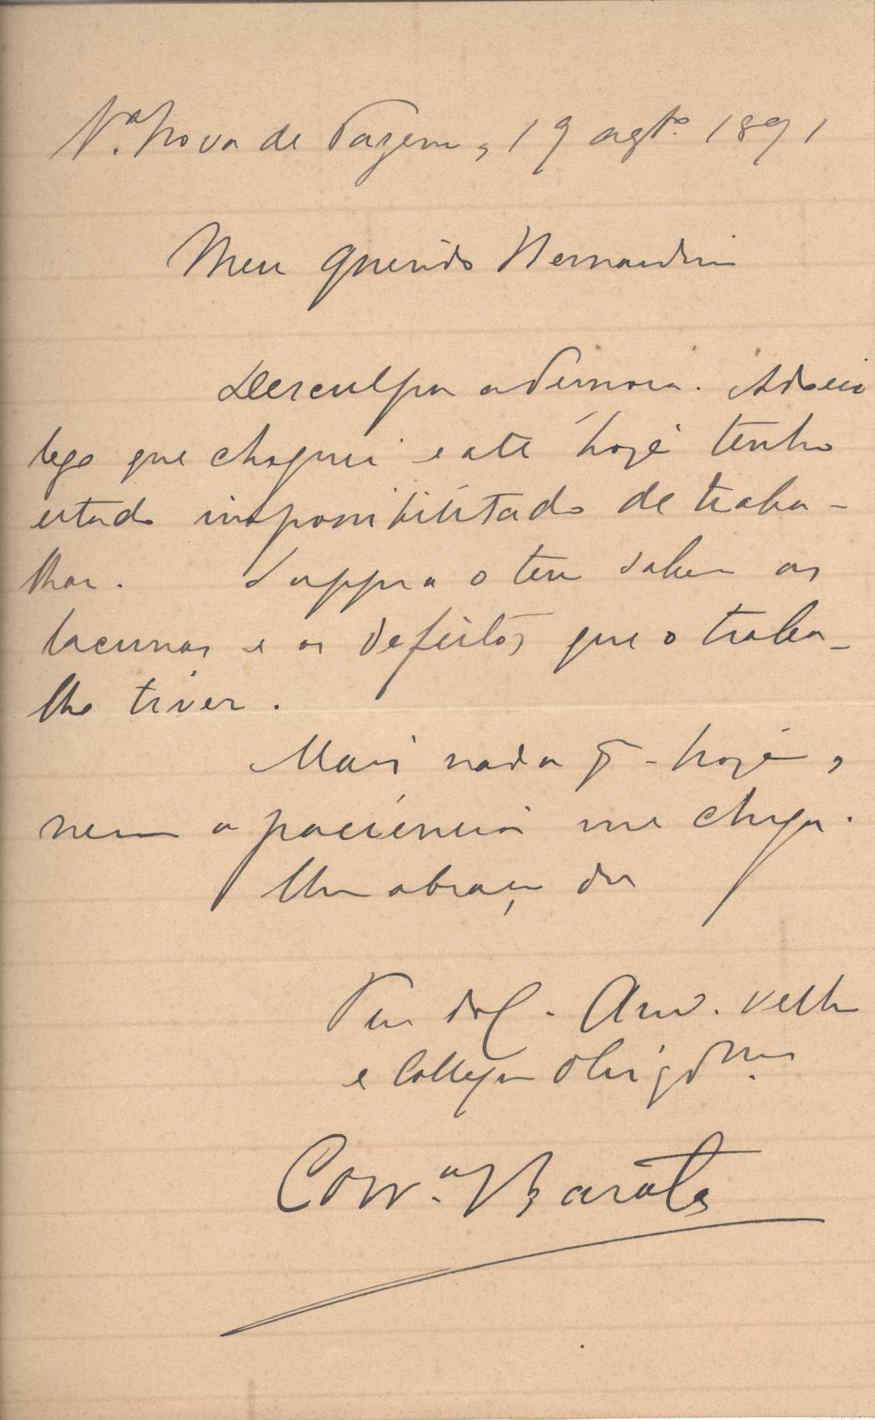 Va. Nova de Gazem, 19 agto. 1891
Meu querido Bernardin
Desculpa a demora. Adoeci
logo que cheguei e até hoje tenho
estado impossibilitado de traba-
lhar. Suppra o teu saber as
lacunas e os defeitos que o traba-
lho tiver.
Mais nada p - hoje,
nem a paciencia me chega.
Um abraço do
Teu do C. Amo. velho
e Collega Obrigdmo.
Barata